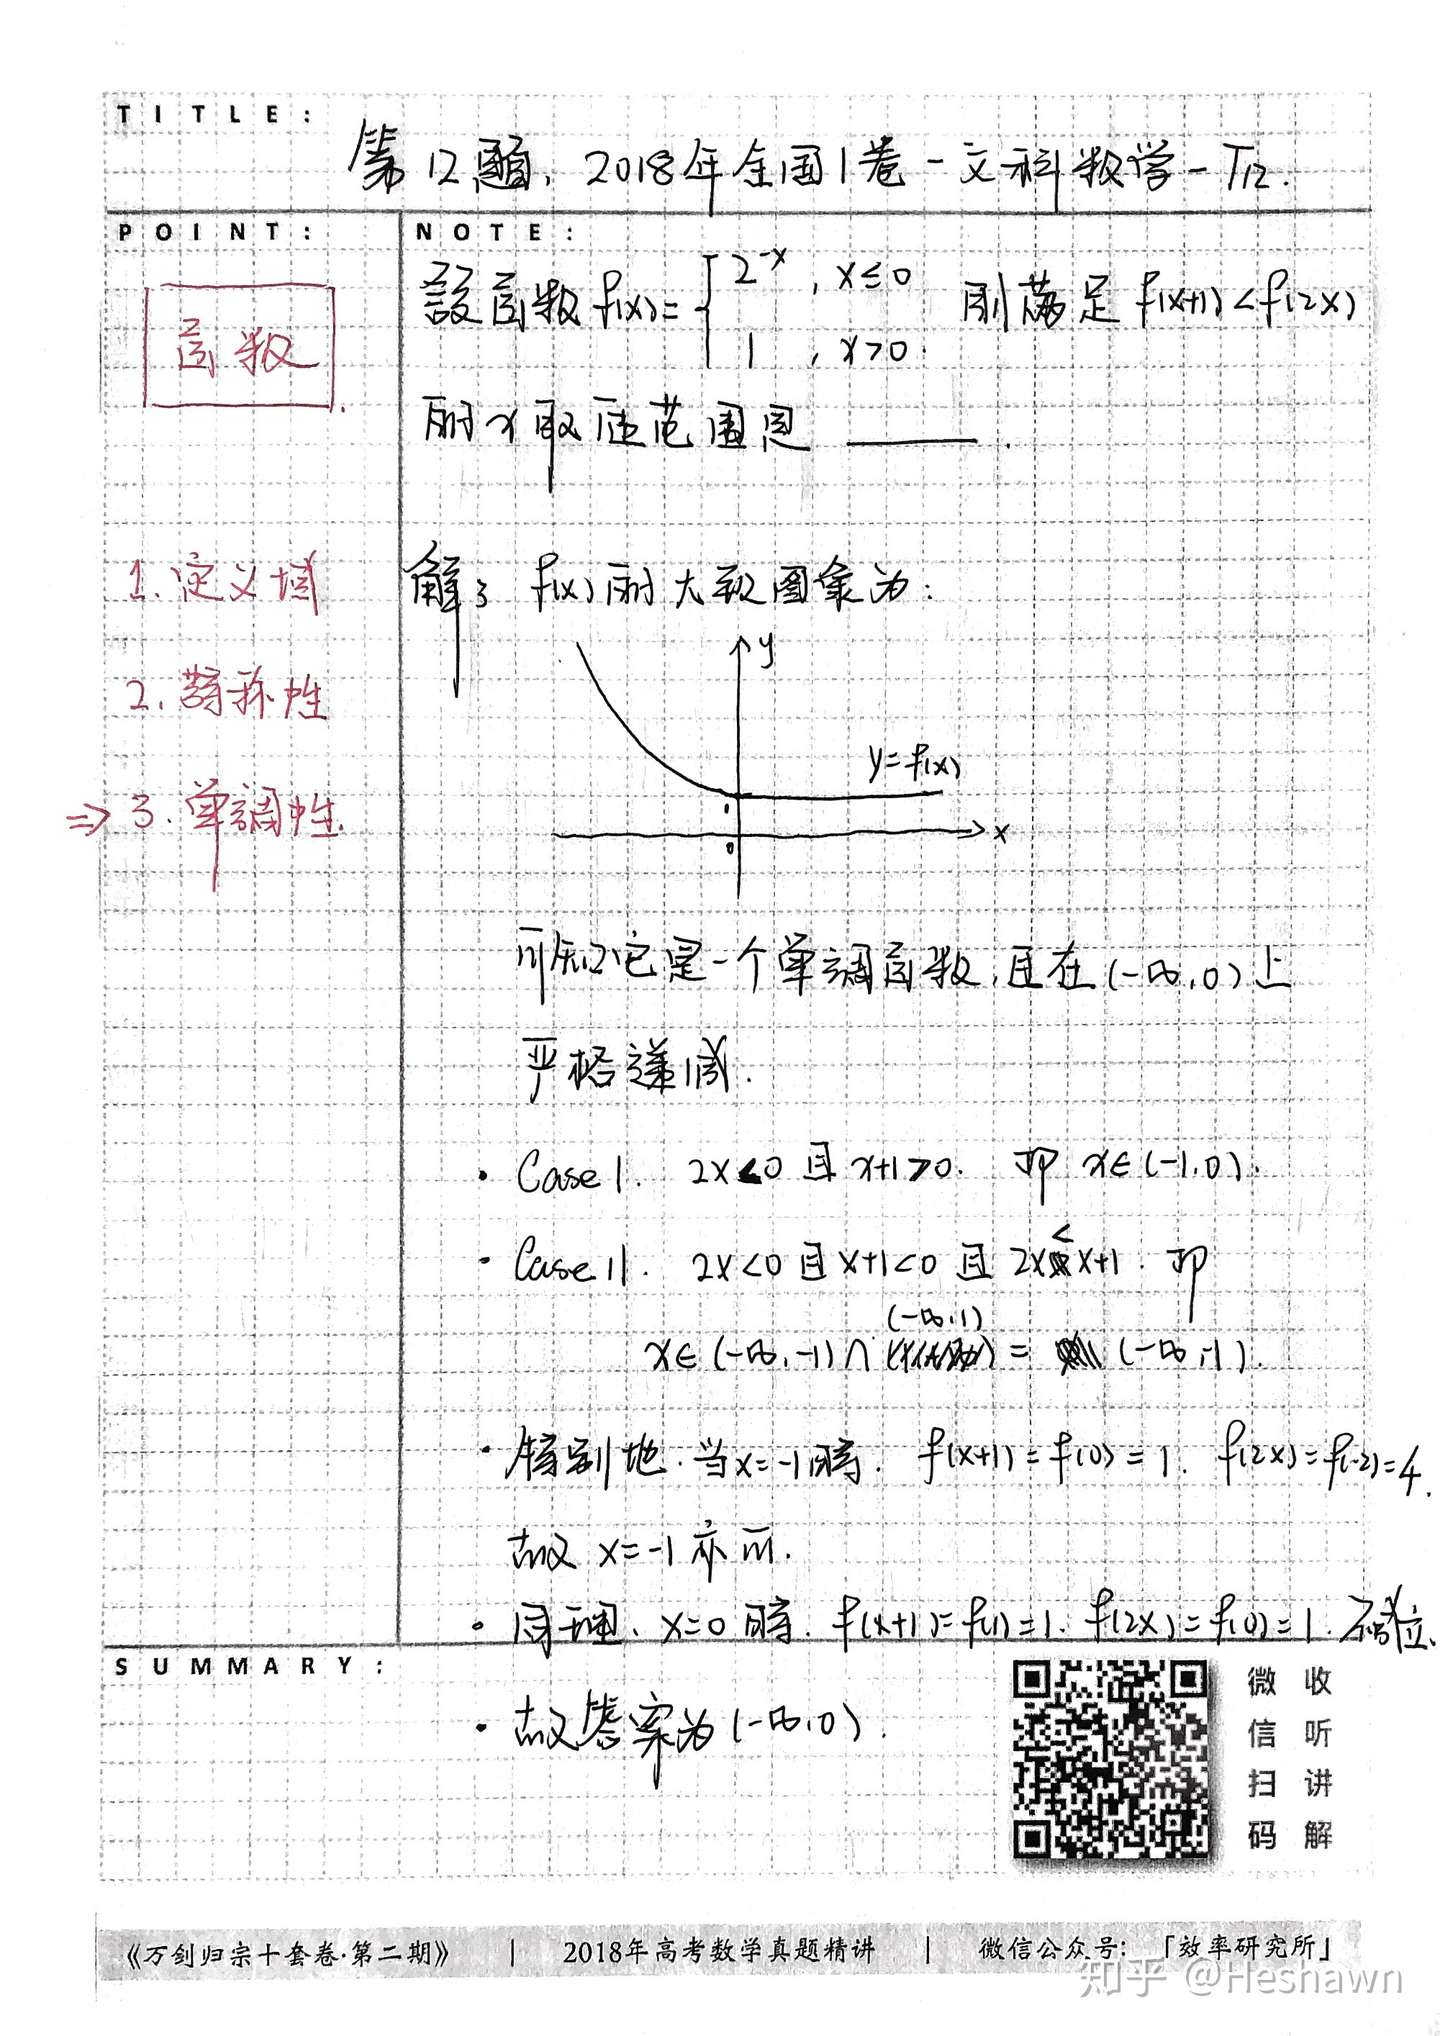 TITLE:
第12题. 2018年全国1卷-文科数学-T12.
POINT:
函数
1. 定义域
2. 对称性
⇒ 3. 单调性.
NOTE:
设函数 f(x)= { 2^-x , x≤0 则满足 f(x+1)<f(2x)
1 , x>0.
的x取值范围是 ______.
解: f(x)的大致图象为:
y
y=f(x)
1
0
x
可知它是一个单调函数,且在(-∞,0)上
严格递减.
· Case I. 2x<0 且 x+1>0. 即 x∈(-1,0).
· Case II. 2x<0 且 x+1<0 且 2x<x+1. 即
x∈(-∞,-1)∩(-∞,1) = (-∞,-1).
· 特别地.当x=-1时. f(x+1)=f(0)=1. f(2x)=f(-2)=4.
故 x=-1 亦可.
· 同理. x=0时. f(x+1)=f(1)=1. f(2x)=f(0)=1. 不成立.
SUMMARY:
· 故答案为(-∞,0).
微信扫码
收听讲解
《万剑归宗十套卷·第二期》 | 2018年高考数学真题精讲 | 微信公众号:「效率研究所」
知乎 @Heshawn